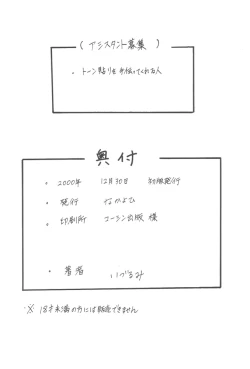 (アシスタント募集)
・トーン貼りを手伝ってくれる人
奥付
・2000年 12月30日 初版発行
・発行
・印刷所 コーシン出版 様
・著者 いづるみ
※ 18才未満の方には販売できません